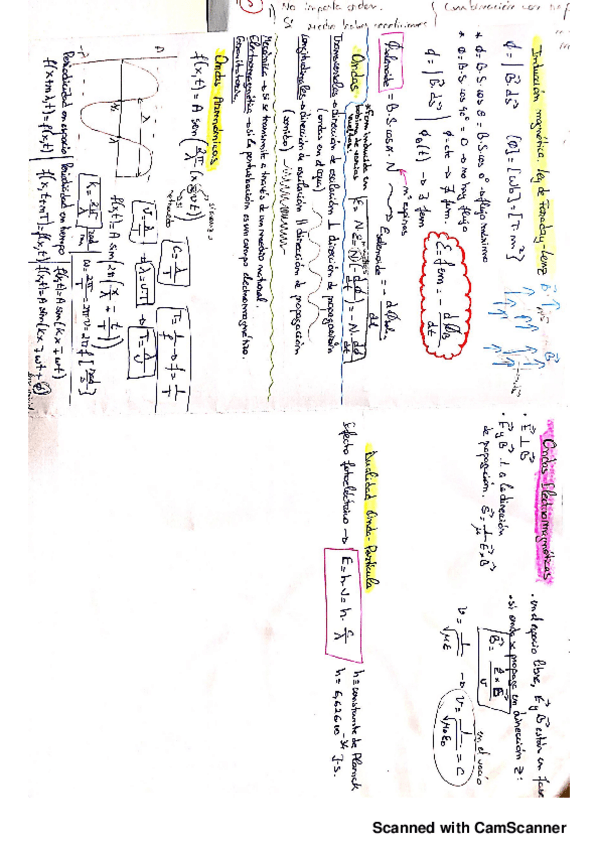 No importa orden.
Inducción magnética. Ley de Faraday-Lenz
ϕ = | B⃗ d s⃗    [ϕ] = [Wb] = [T·m²]
* ϕ = B·S·cos θ = B·S·cos 0° → flujo máximo
* ϕ = B·S·cos 90° = 0 → no hay flujo
ϕ = | B⃗ d s⃗    ϕ = cte → ∄ fem
ϕ_B(t) → ∃ fem
ε = fem = - dϕ_B / dt
nº espiras
ϕsolenoide = B·S·cos α · N
Esolenoide = - dϕsole. / dt
* Fem inducida en bobina de varias vueltas
Ondas
Transversales → dirección de oscilación ⊥ dirección de propagación
(ondas en el agua)
Longitudinales → dirección de oscilación || dirección de propagación
(sonido)
Mecánica → si se transmite a través de un medio material.
Electromagnética → si la perturbación es un campo electromagnético.
Gravitatoria.
Ondas Armónicas
f(x,t) = A sen( 2π/λ (x ∓ vt))
C = λ/T
T = 1/f → f = 1/T
V = λ/T → λ = v·T → T = λ/v
f(x,t) = A sin(2π( x/λ ∓ t/T ))
K = 2π/λ [rad/m]
ω = 2π/T = 2πν = 2πf [rad/s]
Periodicidad en espacio
f(x+nλ,t) = f(x,t)
Periodicidad en tiempo
f(x,t+nT) = f(x,t)
f(x,t) = A sen(kx ∓ ωt)
f(x,t) = A sin(kx ∓ ωt + ϕ)
Ondas Electromagnéticas
· E⃗ ⊥ B⃗
· E⃗ y B⃗ ⊥ a la dirección
de propagación. S⃗ = 1/μ E⃗ x B⃗
· en el espacio libre, E⃗ y B⃗ están en fase
· si onda se propaga en dirección z:
v = 1/√με → v = 1/√μ₀ε₀ = c
en el vacío
Dualidad Onda-Partícula
Efecto fotoeléctrico → E = h·ν = h · c/λ
h ≡ constante de Planck
h = 6,626·10⁻³⁴ J·s.
Scanned with CamScanner